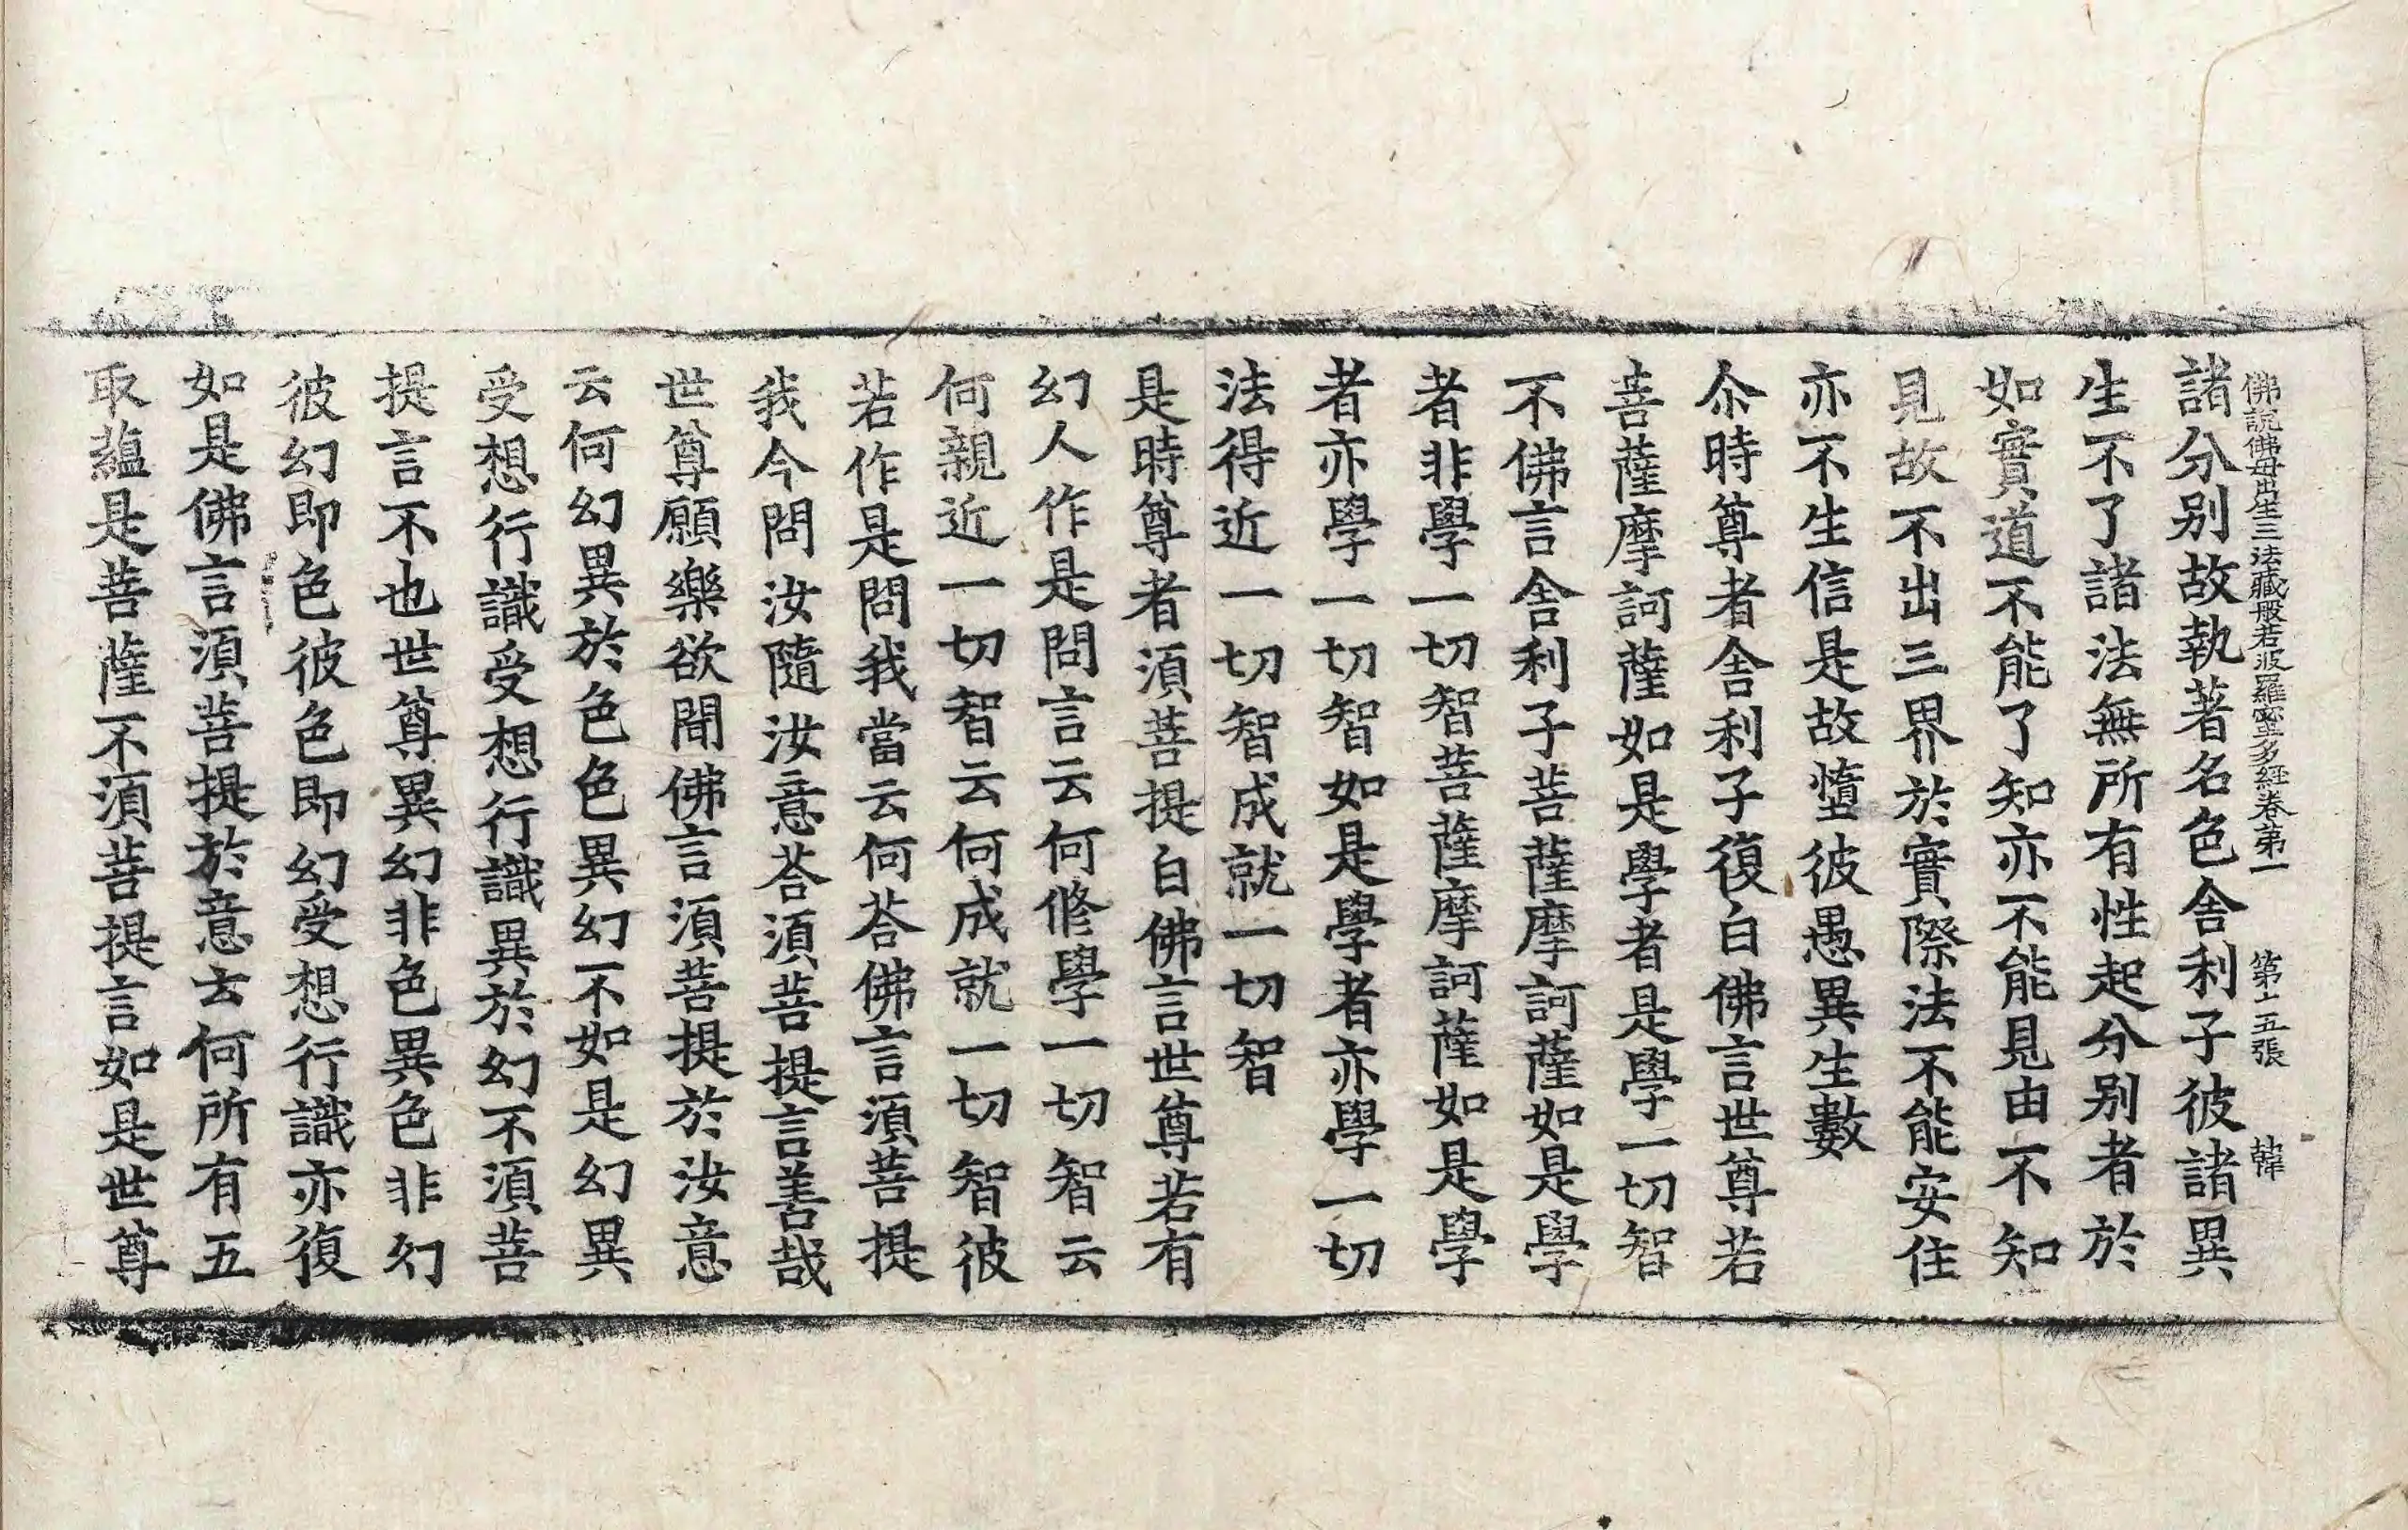 佛說佛母出生三法藏般若波羅蜜多經卷第一 第十五張 韓
諸分别故執著名色舍利子彼諸異
生不了諸法無所有性起分别者於
如實道不能了知亦不能見由不知
見故不出三界於實際法不能安住
亦不生信是故墮彼愚異生數
尒時尊者舍利子復白佛言世尊若
菩薩摩訶薩如是學者是學一切智
不佛言舍利子菩薩摩訶薩如是學
者非學一切智菩薩摩訶薩如是學
者亦學一切智如是學者亦學一切
法得近一切智成就一切智
是時尊者湏菩提白佛言世尊若有
幻人作是問言云何修學一切智云
何親近一切智云何成就一切智彼
若作是問我當云何荅佛言湏菩提
我今問汝隨汝意荅湏菩提言善哉
世尊願樂欲聞佛言湏菩提於汝意
云何幻異於色色異幻不如是幻異
受想行識受想行識異於幻不湏菩
提言不也世尊異幻非色異色非幻
彼幻即色彼色即幻受想行識亦復
如是佛言湏菩提於意云何所有五
取蘊是菩薩不湏菩提言如是世尊